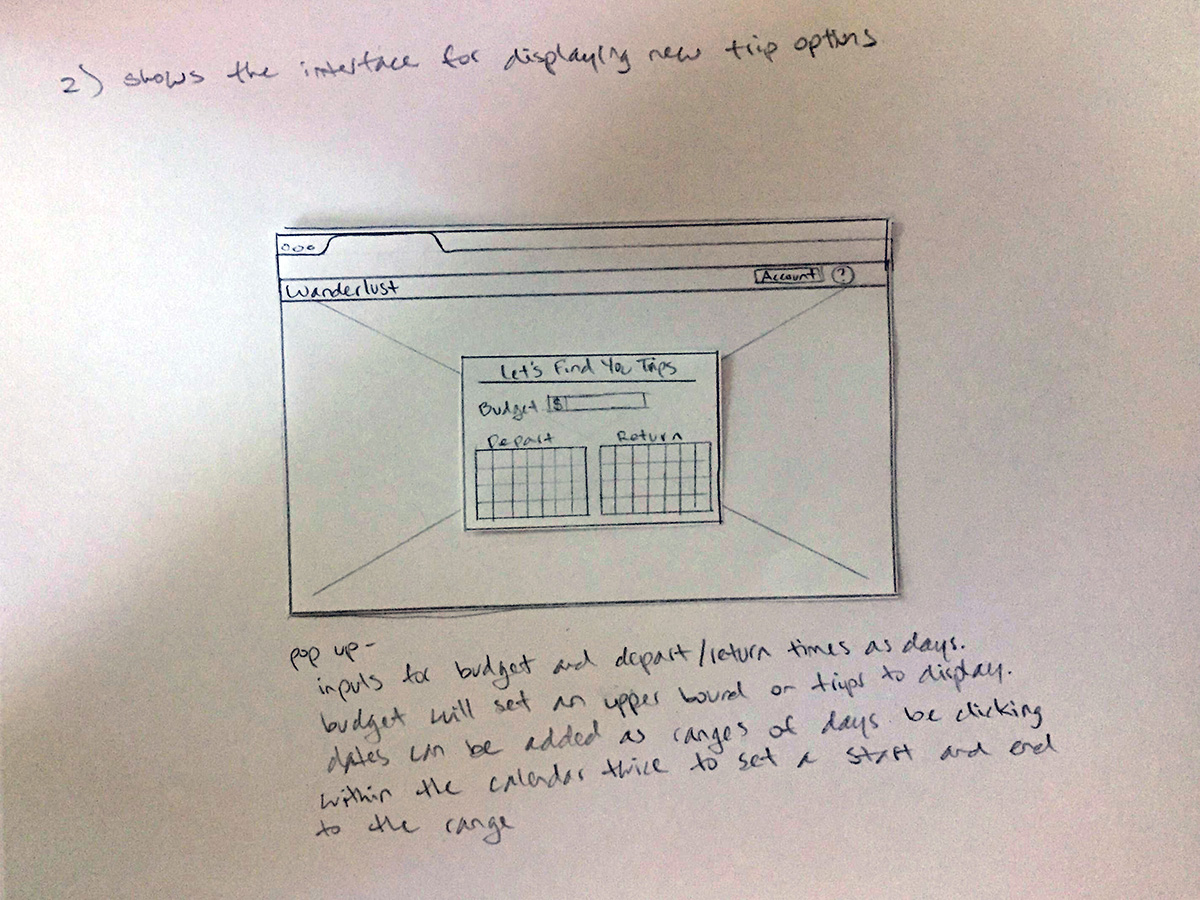 2) shows the interface for displaying new trip options
Wanderlust
Account ?
Let's Find You Trips
Budget $
Depart Return
pop up -
inputs for budget and depart/return times as days.
budget will set an upper bound on trips to display.
dates can be added as ranges of days be clicking
within the calendar twice to set a start and end
to the range